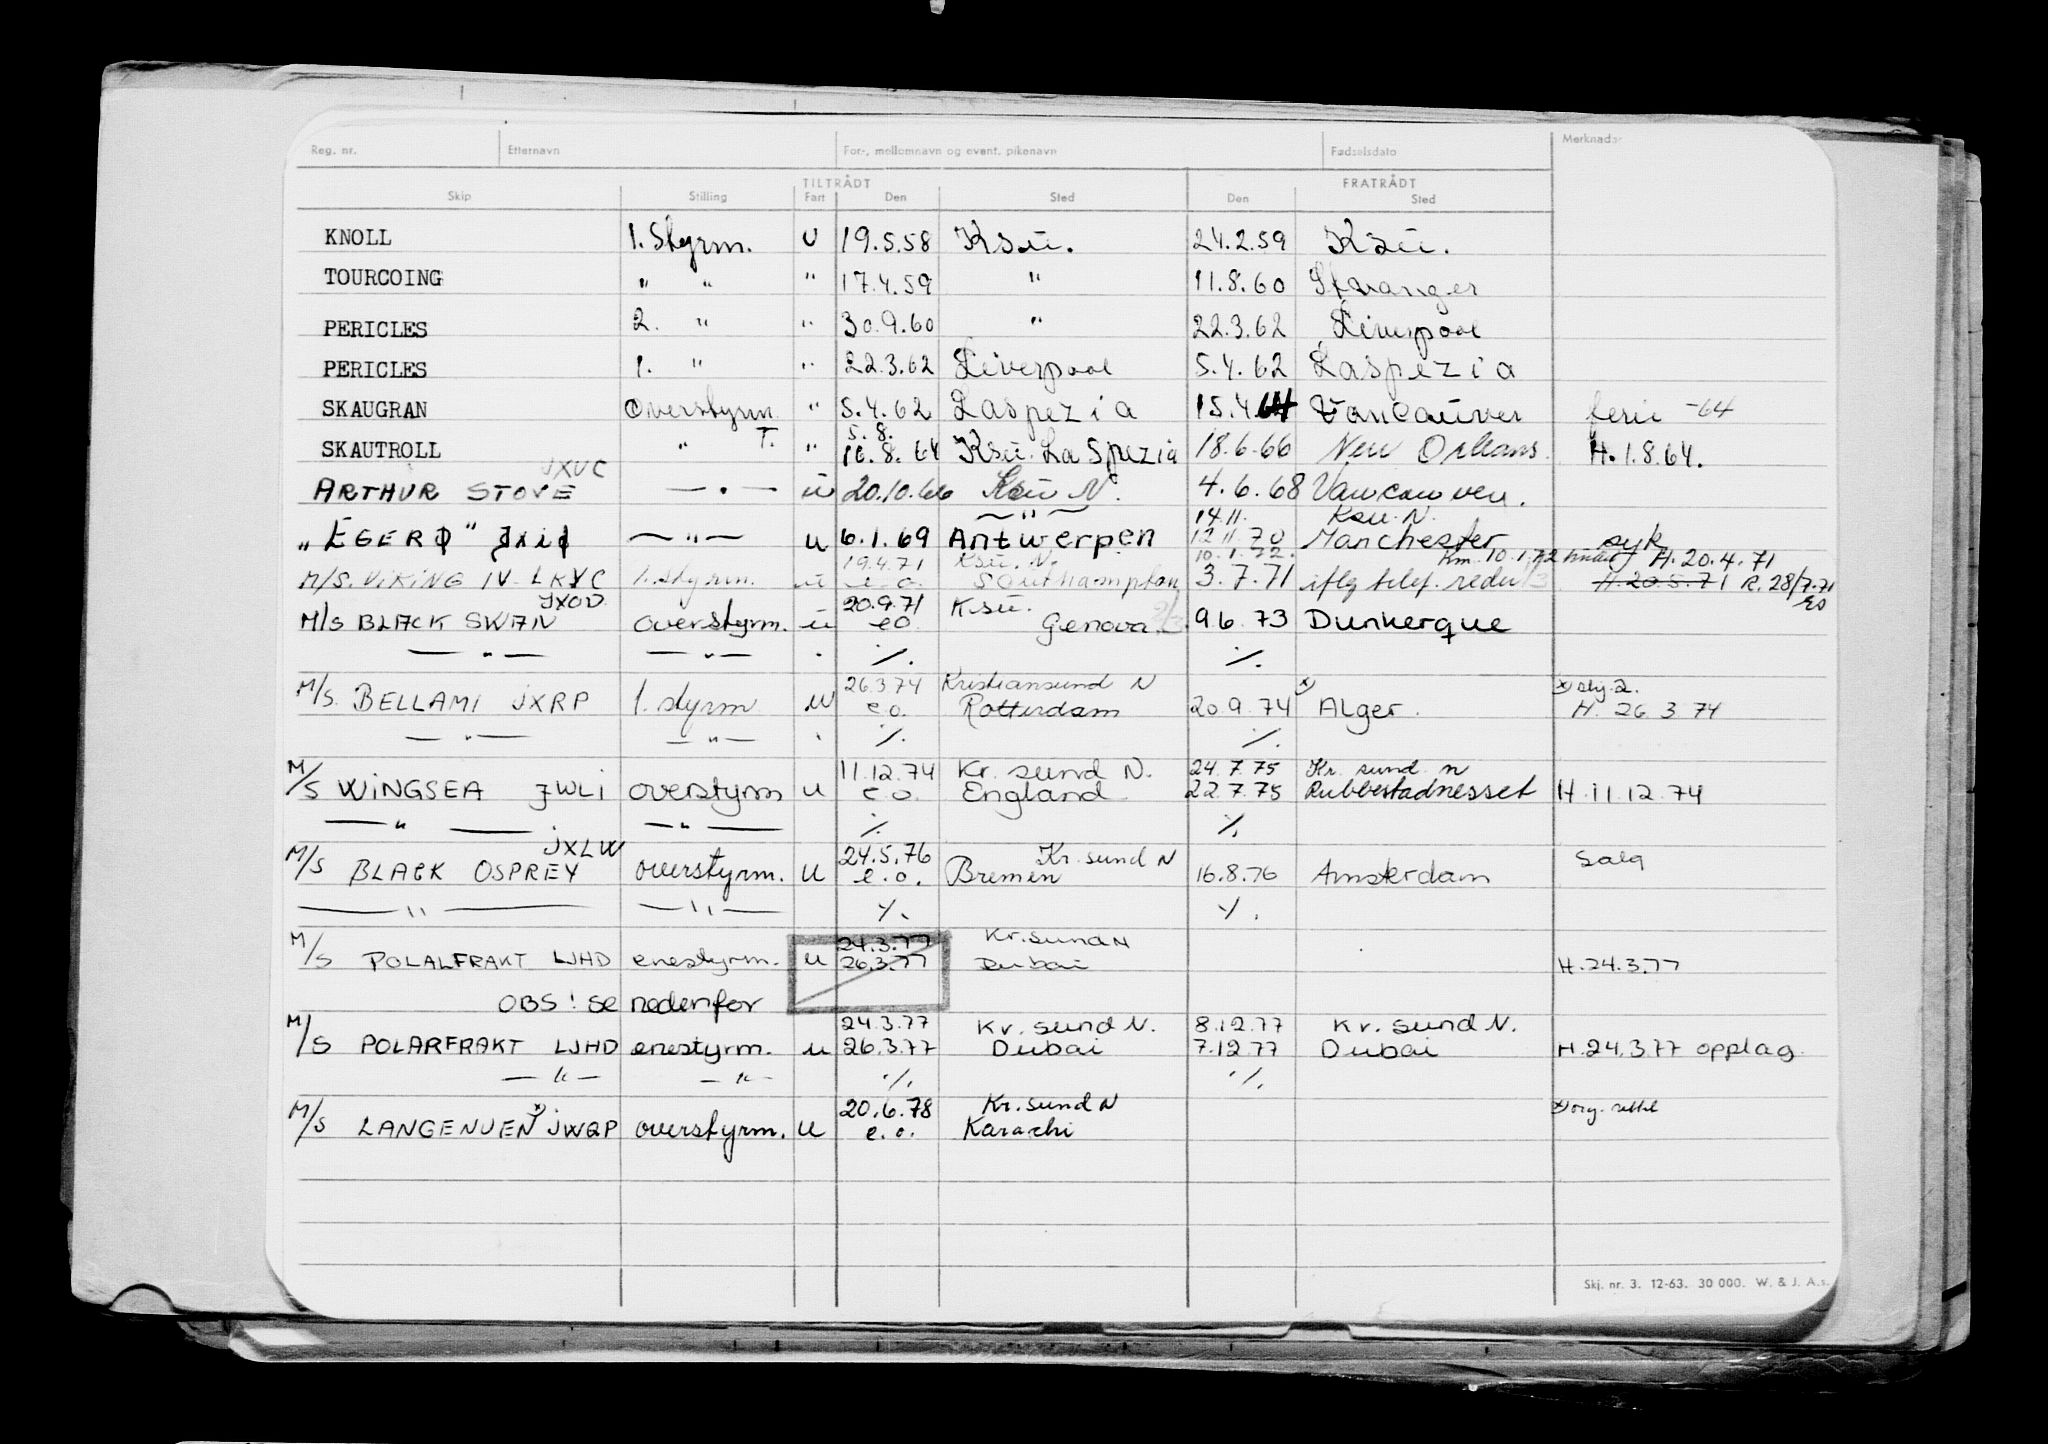 Reg. nr. Etternavn For-, mellomnavn og event. pikenavn Fødselsdato Merknader
TILTRÅDT FRATRÅDT
Skip Stilling Fart Den Sted Den Sted
KNOLL 1. Styrm. U 19.5.58 Ksu. 24.2.59 Ksu.
TOURCOING " " " 17.4.59 " 11.8.60 Stavanger
PERICLES 2. " " 30.9.60 " 22.3.62 Liverpool
PERICLES 1. " " 22.3.62 Liverpool 5.4.62 Laspezia
SKAUGRAN Overstyrm " 5.4.62 Laspezia 15.4.64 Vancouver ferie -64
T. 5.8.
SKAUTROLL " " 10.8.64 Ksu. La Spezia 18.6.66 New Orleans. H.1.8.64.
JXUC
ARTHUR STOVE — . — u 20.10.66 Ksu N. 4.6.68 Vancouver.
— " — 14.11. Ksu. N.
„EGERØ" JXiJ — " — u 6.1.69 Antwerpen 12.11.70 Manchester syk
19.4.71 Ksu. N. 10.1.72. Km. 10.1.72 H. 20.4.71
M/S. VIKING IV LKYC 1. styrm. u e.o. Southampton 3.7.71 iflg telef. rederi H. 20.5.71 R. 28/7.71
JXOD 20.9.71 Ksu.
M/S BLACK SWAN overstyrm. u eo. Genova 9.6.73 Dunkerque
— " — — " — . ⁒. ⁒.
26.3.74 Kristiansund N x) x) skj. 2.
M/S. BELLAMI JXRP 1. styrm u e.o. Rotterdam 20.9.74 Alger. H. 26.3.74
— " — — " — . ⁒. ⁒.
11.12.74 Kr. sund N. 24.7.75 Kr. sund. n
M/S WiNGSEA JWLI overstyrm u e.o. England 22.7.75 Rubbestadnesset H. 11.12.74
— " — — " — ⁒. ⁒.
JXLW 24.5.76 Kr. sund N Salg
M/S BLACK OSPREY overstyrm. u e.o. Bremen 16.8.76 Amsterdam
— " — — " — ⁒. ⁒.
24.3.77 Kr. sund N
M/S POLALFRAKT LJHD enestyrm. u 26.3.77 Dubai H.24.3.77
OBS! se nedenfor
24.3.77 Kr. sund N. 8.12.77 Kr. sund N.
M/S POLARFRAKT LJHD enestyrm. u 26.3.77 Dubai 7.12.77 Dubai H.24.3.77 opplag.
— " — — " — ⁒. ⁒.
20.6.78 Kr. sund N x) org. seddel
M/S LANGENUEN x) JWQP overstyrm. u e.o. Karachi
Skj. nr. 3. 12-63. 30 000. W. & J. A.s.